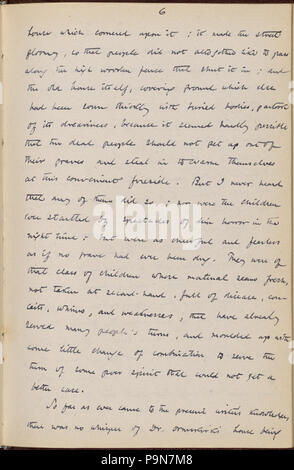 6
house which cornered upon it; it made the street
gloomy, so that people did not altogether like to pass
along the high wooden fence that shut it in; and
the old house itself, covering ground which else
had been sown thickly with buried bodies, partook
of its dreariness, because it seemed hardly possible
that the dead people should not get up out of
their graves and steal in to warm themselves
at this convenient fireside. But I never heard
that any of them did so; nor were the children
ever startled by spectacles of dim horror in the
night-time; but were as cheerful and fearless
as if no grave had ever been dug. They were of
that class of children whose material seems fresh,
not taken at second-hand, full of disease, con-
ceits, whims, and weaknesses, that have already
served many people's turns, and moulded up with
some little change of combination to serve the
turn of some poor spirit that could not get a
better case.
So far as ever came to the present writer's knowledge,
there was no whisper of Dr. house being
alamy
P9N7M8